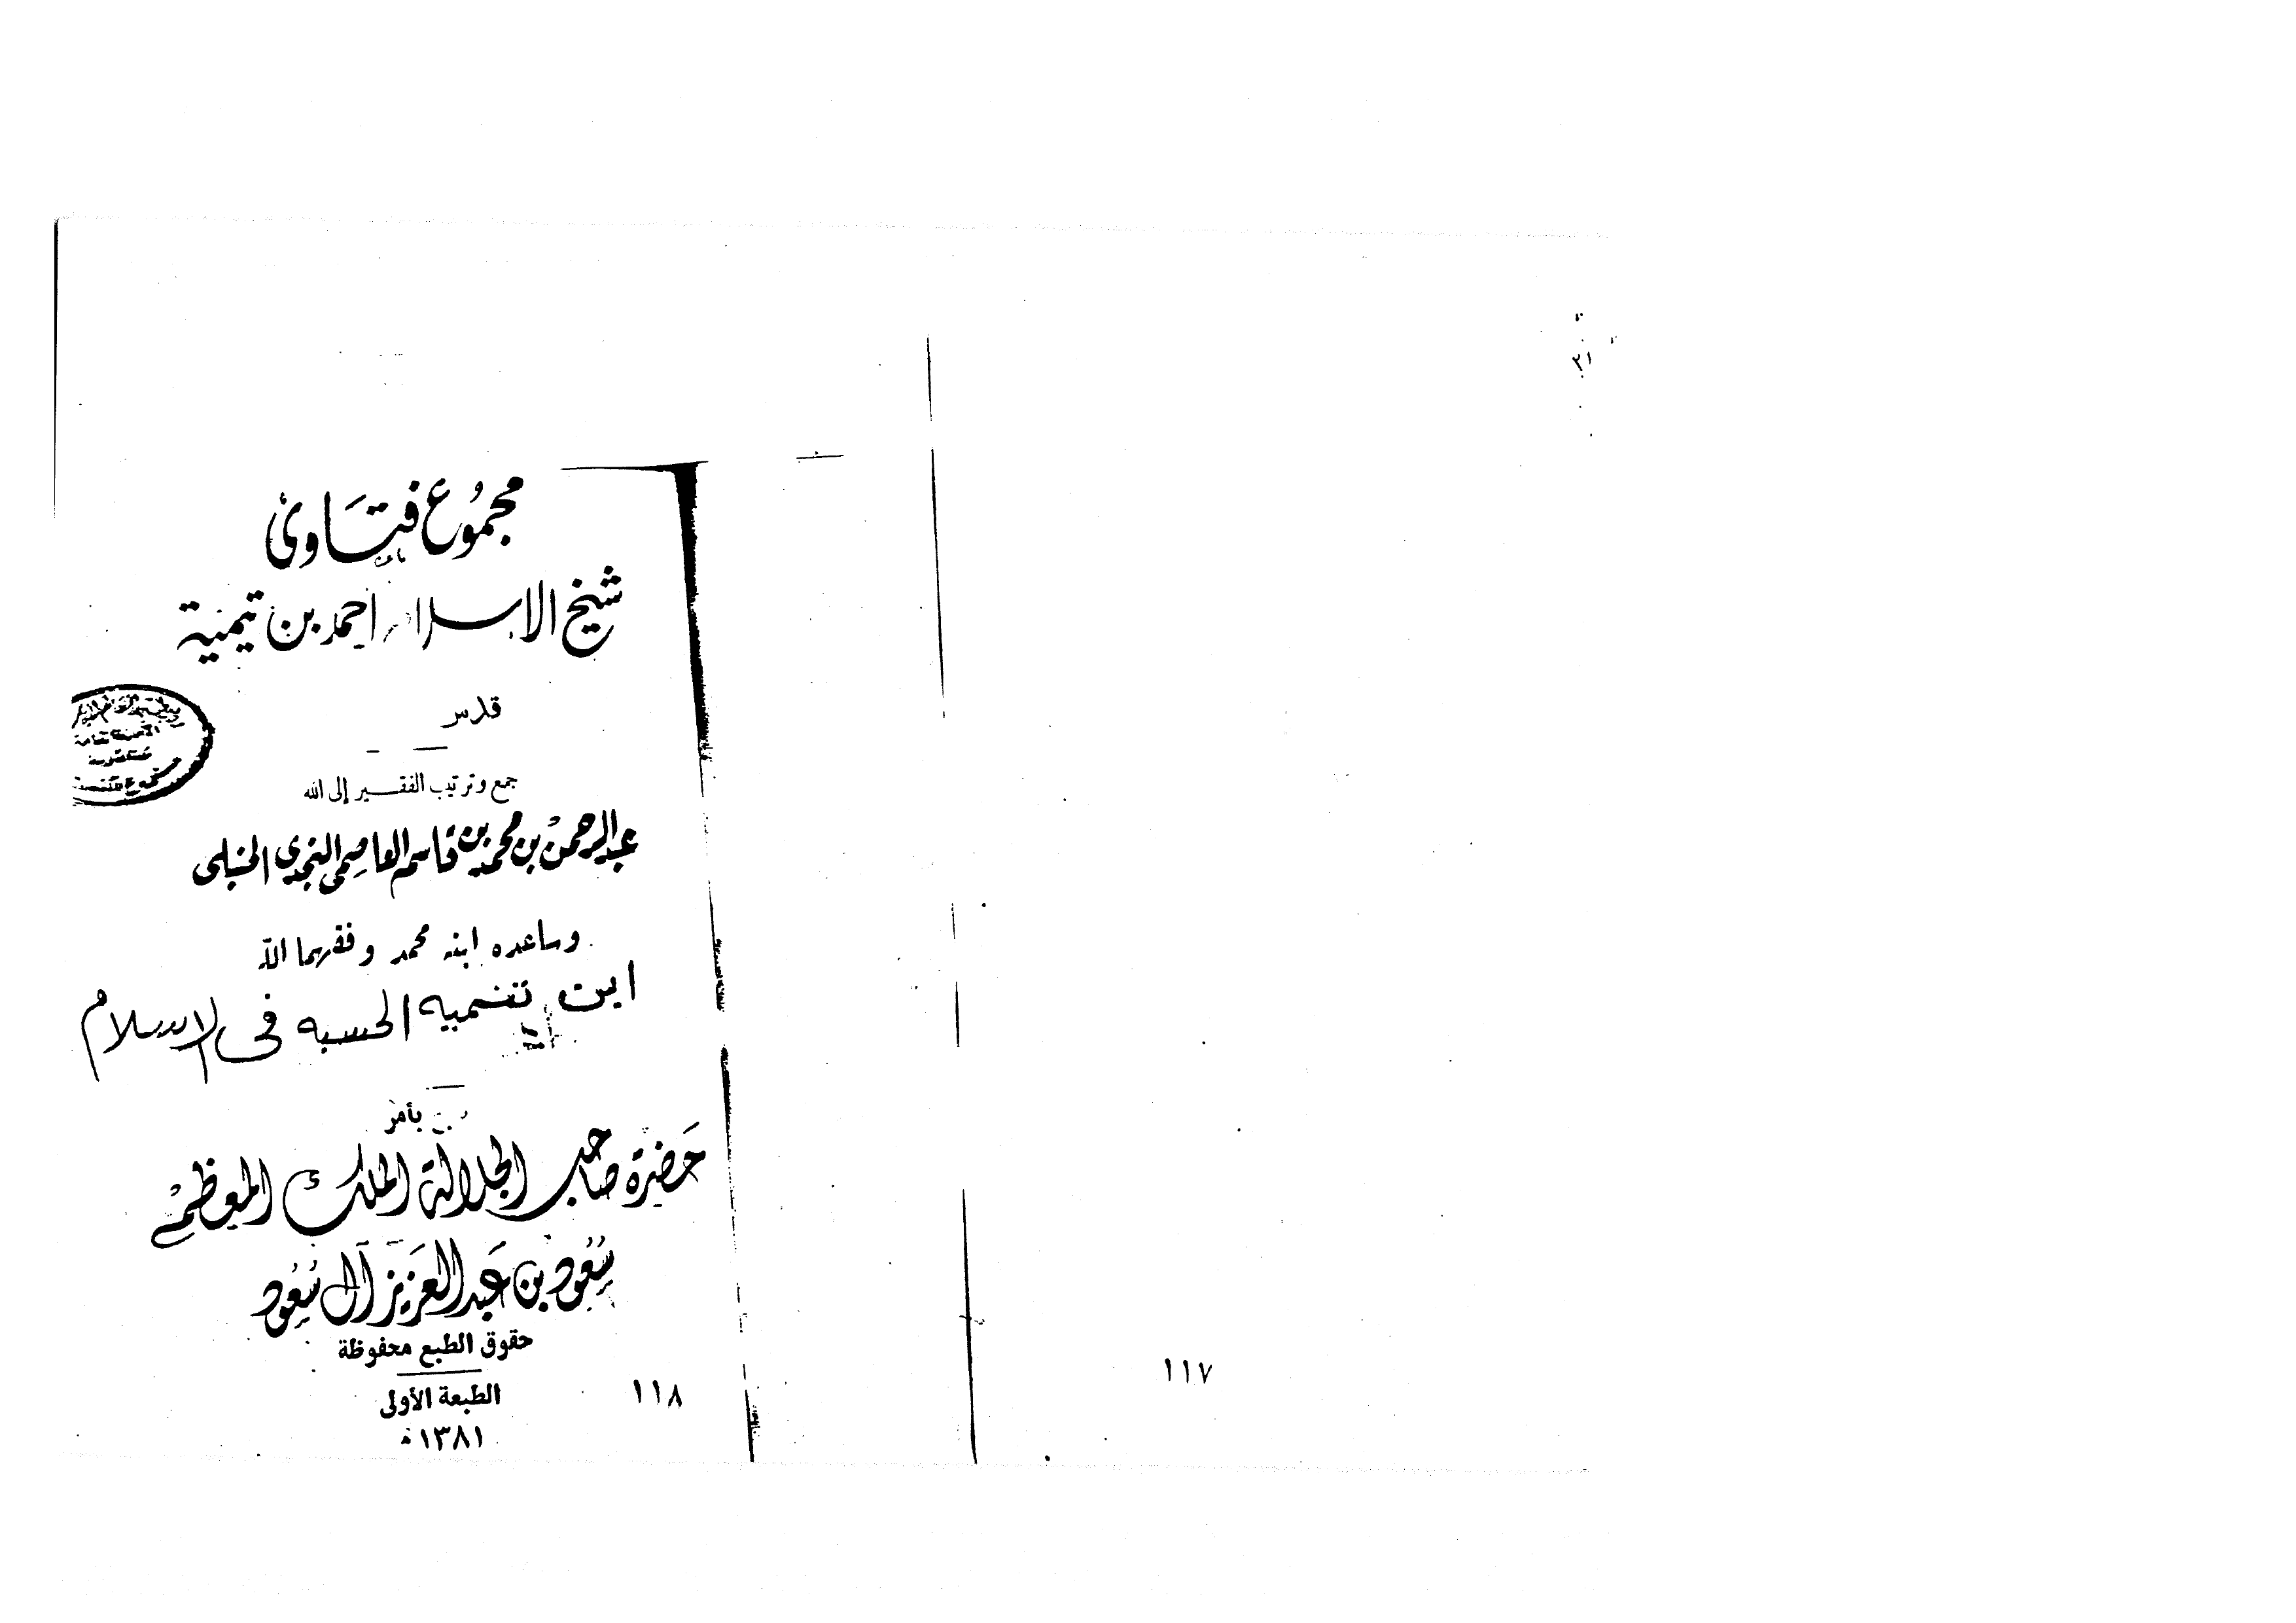 مجموع فتاوى
شيخ الاسلام احمد بن تيمية
قدس
جمع وترتيب الفقير إلى الله
عبد الرحمن بن محمد بن قاسم العاصمى النجدى الحنبلى
وساعده ابنه محمد وفقهما الله
ابن تيميه الحسبه فى الاسلام
بأمر
حَضرة صاحب الجلالة الملك المعظم
سُعُود بن عَبد العَزيز آل سُعُود
حقوق الطبع محفوظة
الطبعة الأولى
١٣٨١ هـ
١١٨
١١٧